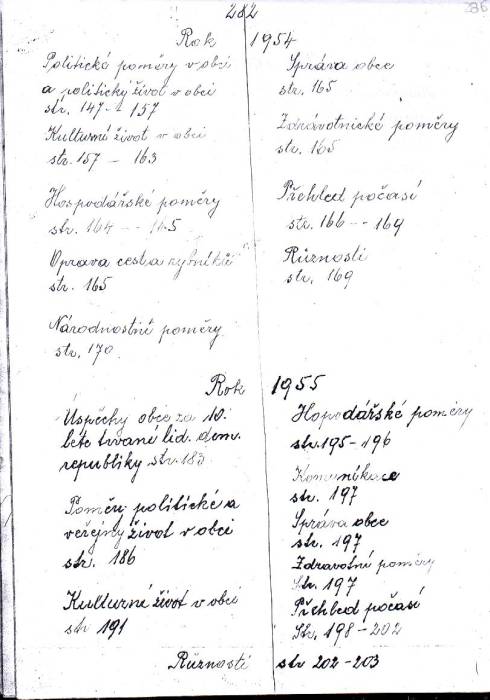 282
Rok 1954
Politické poměry v obci
a politický život v obci
str. 147 - 157
Kulturní život v obci
str. 157 - 163
Hospodářské poměry
str. 164 - 165
Oprava cest a rybníků
str. 165
Národnostní poměry
str. 170
Správa obce
str. 165
Zdravotnické poměry
str. 165
Přehled počasí
str. 166 - 169
Různosti
str. 169
Rok 1955
Úspěchy obce za 10.
léte trvané lid. dem.
republiky str. 183
Poměry politické a
veřejný život v obci
str. 186
Kulturní život v obci
str 191
Hopodářské poměry
str. 195 - 196
Komunikace
str. 197
Správa obce
str. 197
Zdravotní poměry
str. 197
Přehled počasí
Str. 198 - 202
Různosti str 202 - 203